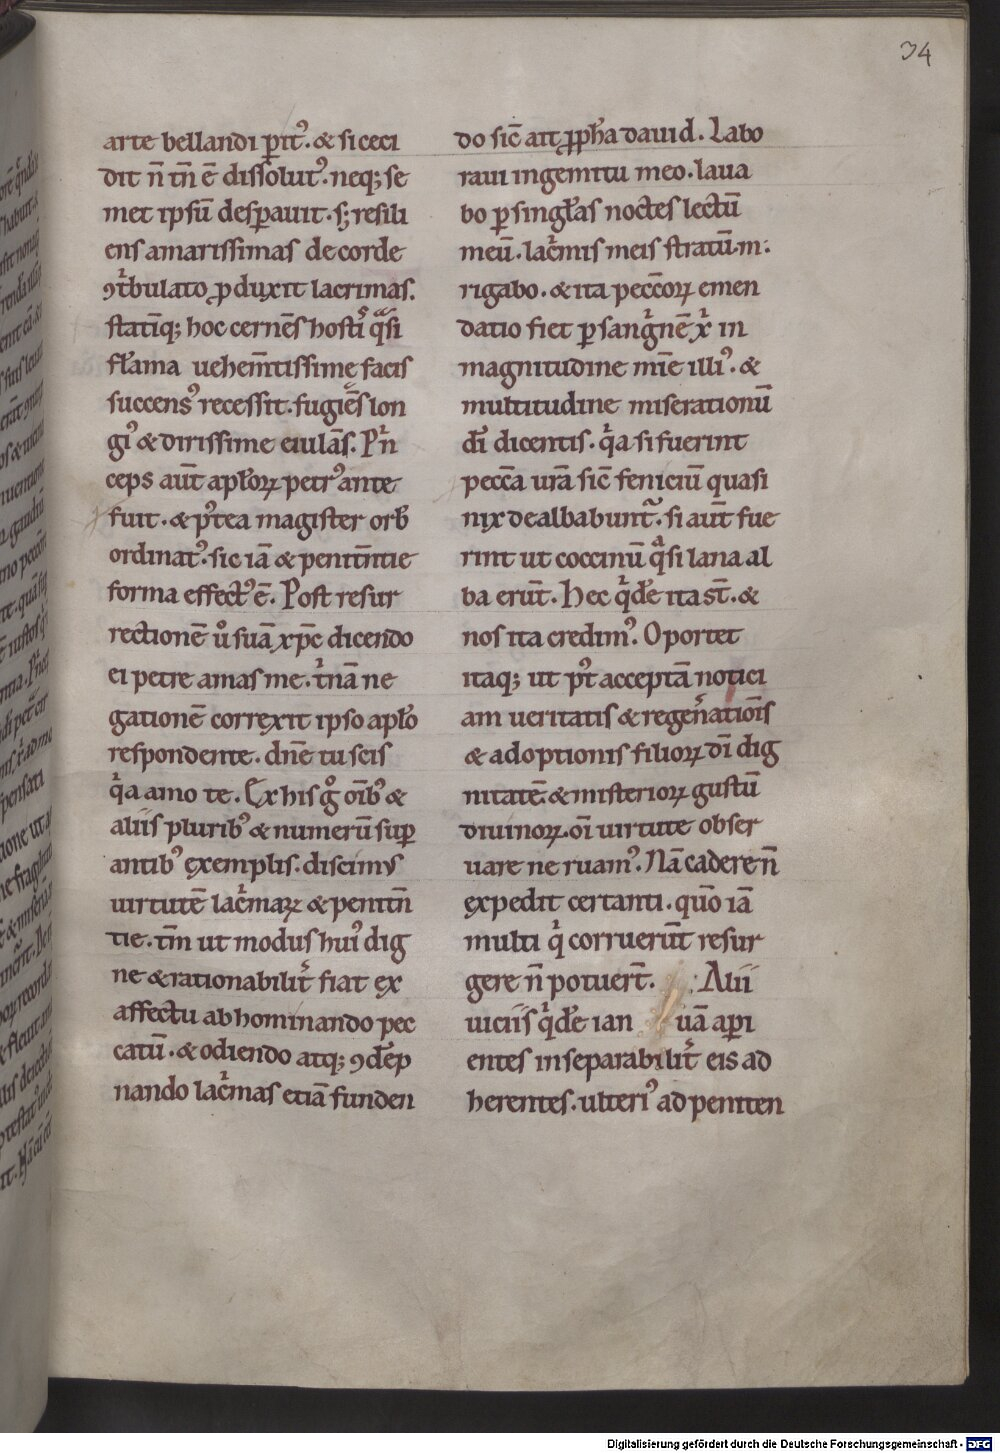 34
arte bellandi ꝑit᷒. & si ceci
dit n̄ tn̄ ē dissolut᷒. neq; se
met ipsū desꝑauit. s; resili
ens amarissimas de corde
ꝯtͥbulato ꝓduxit lacrimas.
statīq; hoc cernēs hostͥs qͣsi
flāma uehem̄tissime facis
succens᷒ recessit. fugiēs lon
gi᷒ & dirissime eiulās. Pͥn
ceps aūt apl̄oꝝ petr᷒ ante
fuit. & p᷒tea magister orb̄
ordinat᷒. sic iā & penitn̄tie
forma effect᷒ ē. Post resur
rectionē uͦ suā xp̄c dicendo
ei petre amas me. tͥnā ne
gationē correxit ipso apl̄o
respondente. dn̄e tu scis
qͥa amo te. Ex his gͦ oīb᷒ &
aliis plurib᷒ & numerū suꝑ
antib᷒ exemplis. discimus
uirtutē lacͥmaꝝ & penitn̄
tie. tm̄ ut modus hui᷒ dig
ne & rationabilit̄ fiat ex
affectu abhominando pec
catū. & odiendo atq; ꝯdēp
nando lacͥmas etiā funden
do sic̄ ait ꝓph̄a dauid. Labo
raui in gemitu meo. laua
bo ꝑ singl̄as noctes lectū
meū. lacͥmis meis stratū. m:
rigabo. & ita pecc̄oꝝ emen
datio fiet ꝑ sangͥnē xͥ in
magnitudine mīe illi᷒. &
multitudine miserationū
dī dicentis. qͥa si fuerint
pecc̄a ur̄a sic̄ feniciū quasi
nix dealbabunt̄. si aūt fue
rint ut coccinū qͣsi lana al
ba erūt. Hec qͥdē ita st̄. &
nos ita credim᷒. Oportet
itaq; ut p᷒t acceptā notici
am ueritatis & regen̄ationis
& adoptionis filioꝝ dī dig
nitatē. & misterioꝝ gustū
diuinoꝝ. oī uirtute obser
uare ne ruam᷒. Nā cadere n̄
expedit certanti. quō iā
multi qͥ corruerūt resur
gere n̄ potuert̄. Alii
uiciis qͥdē ian uā aꝑi
entes inseparabilit̄ eis ad
herentes. ulteri᷒ ad peniten
Digitalisierung gefördert durch die Deutsche Forschungsgemeinschaft - DFG